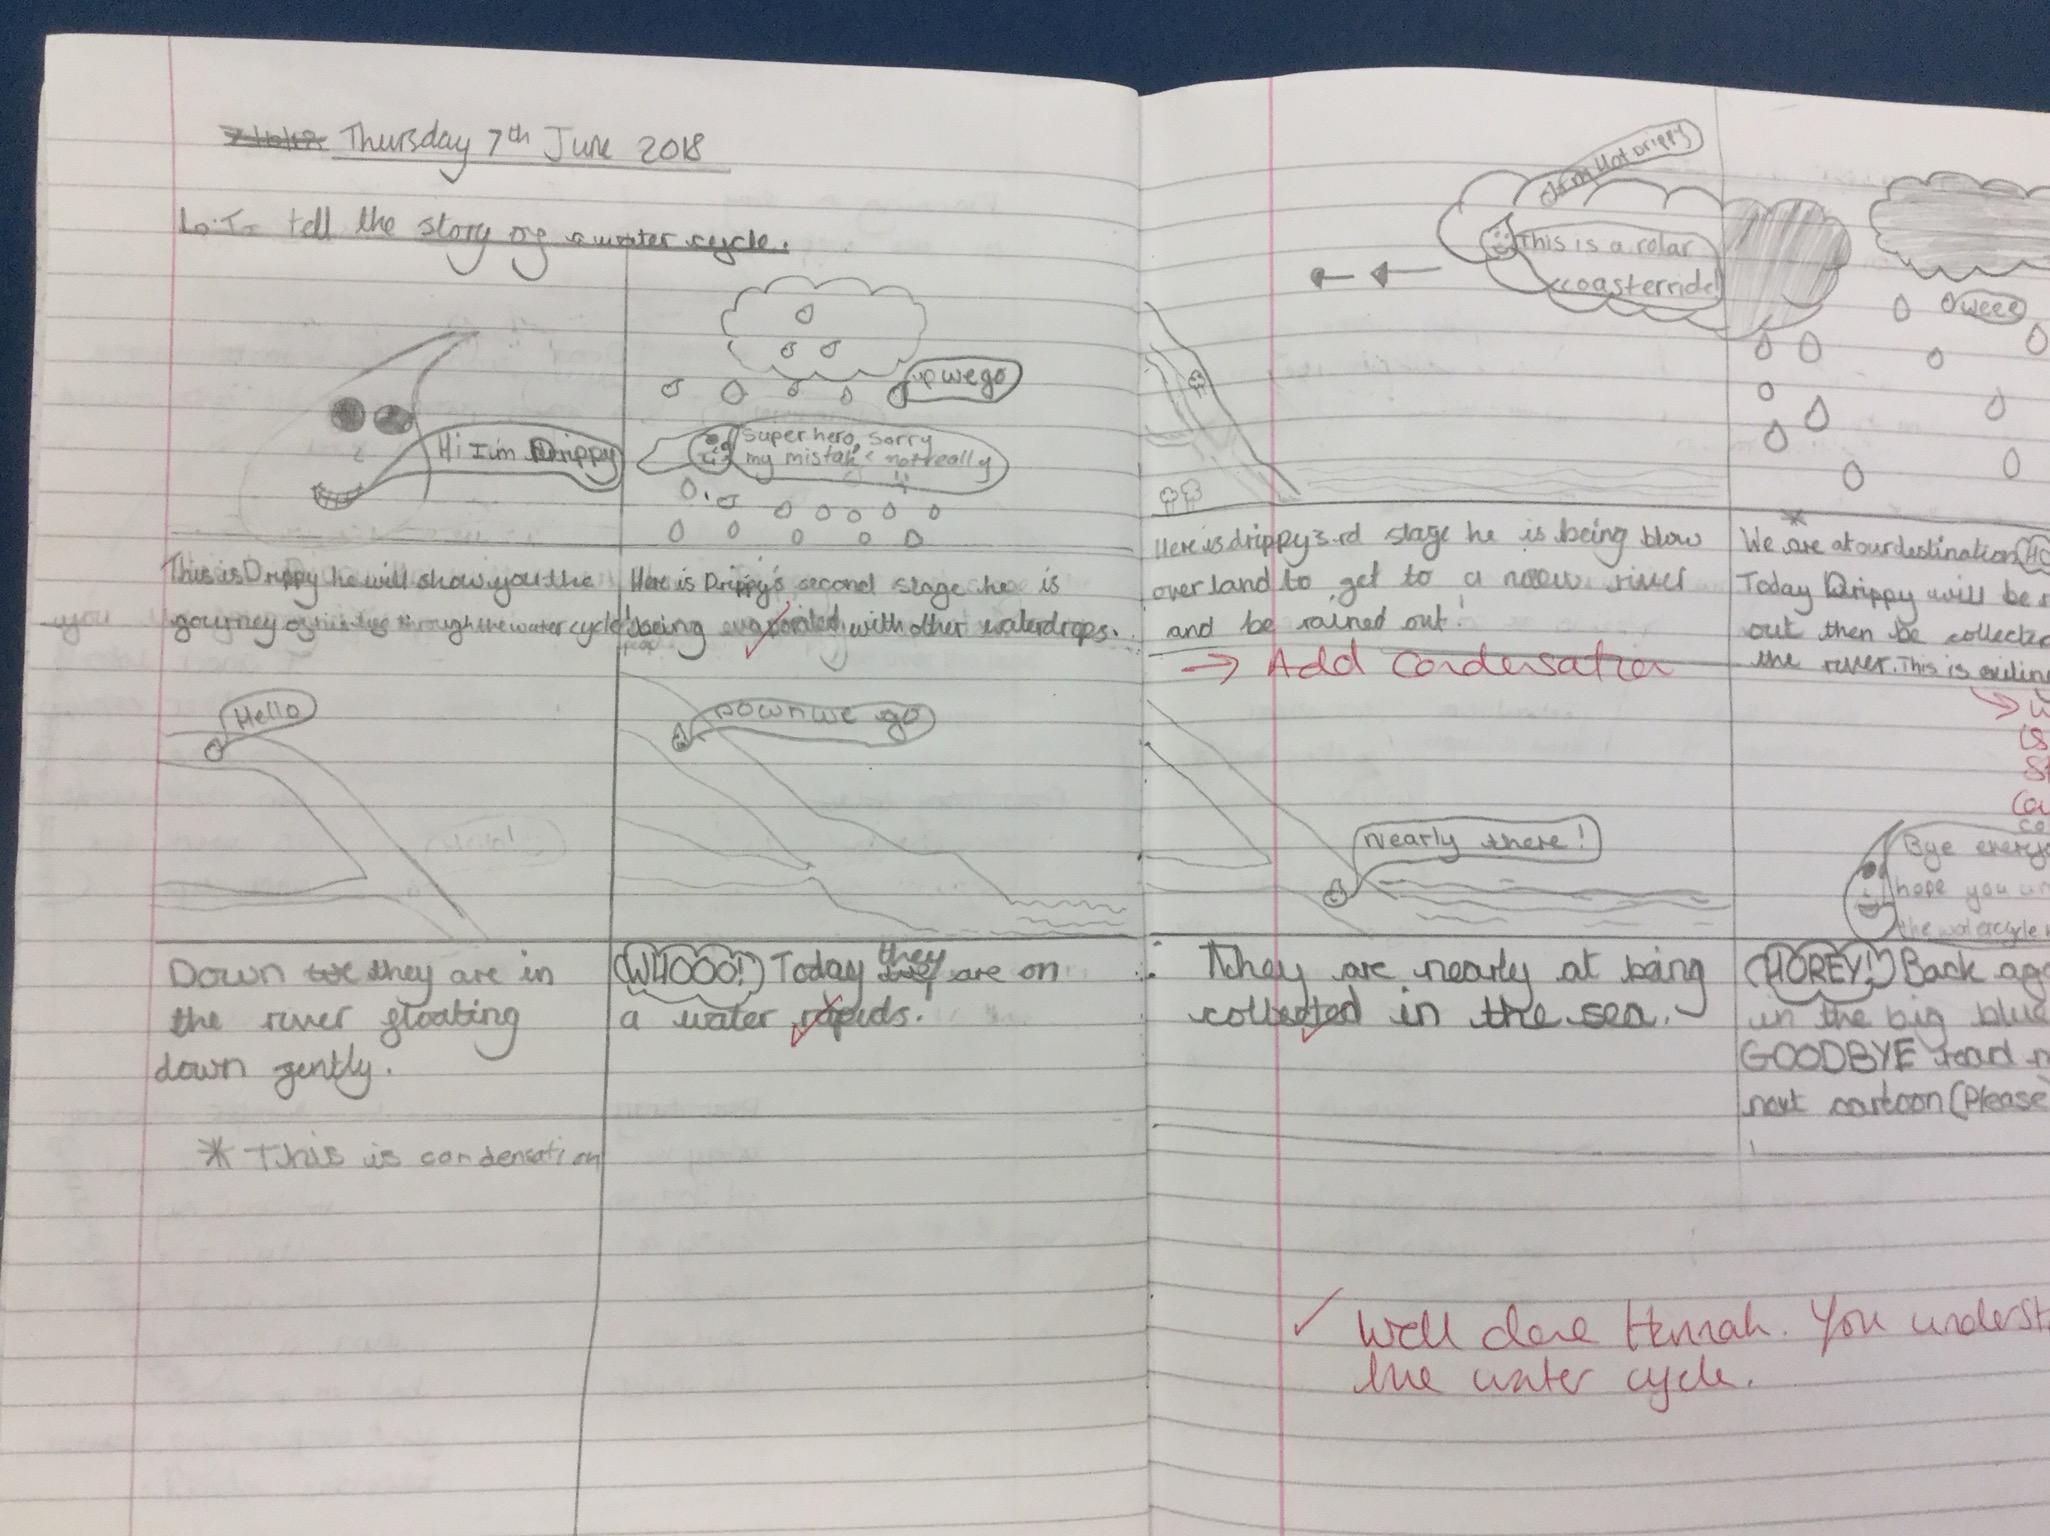 Thursday 7th June 2018
L.I- tell the story of a water cycle.
Hi I'm Drippy
up we go
Superhero, sorry
my mistake not really
This is Drippy he will show you the
gourney through the water cycle
you
Here is Drippy's second stage he is
being evaporated with other waterdrops.
I'm Not Drippy
This is a rolar
coasterride!
weee
Here is drippy 3rd stage he is being blow
over land to get to a neew river
and be rained out!
→ Add condensation
*
We are at our destination
Today Drippy will be
out then be collected
the river. This is
Hello
Down we go
Nearly there!
Bye
hope you
the watercycle
Down we they are in
the river floating
down gently.
* This is condensation
(WHOOO!) Today they are on
a water rapids.
They are nearly at being
collected in the sea.
(HOREY!) Back
in the big blue
GOODBYE read
next cartoon (Please
✓ Well done Hannah. You
the water cycle.